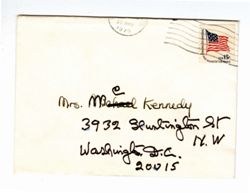 1975
15c
C
Mrs. Michael Kennedy
3932 Huntington St
N.W
Washington D.C.
20015